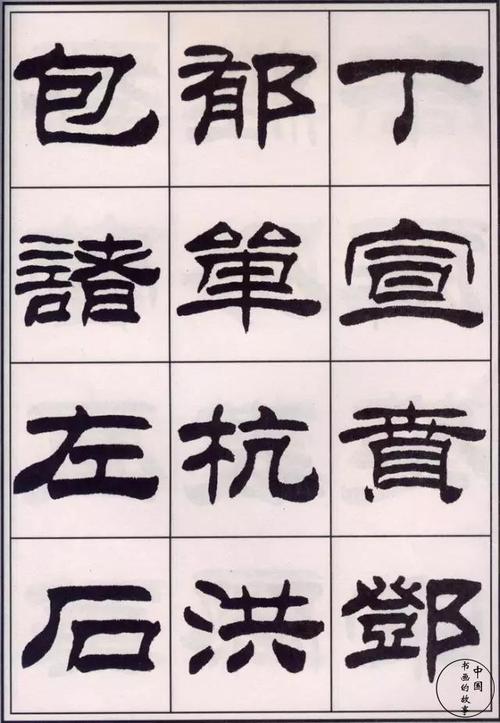 丁宣賁鄧
郁單杭洪
包諸左石
中国
书画的故事